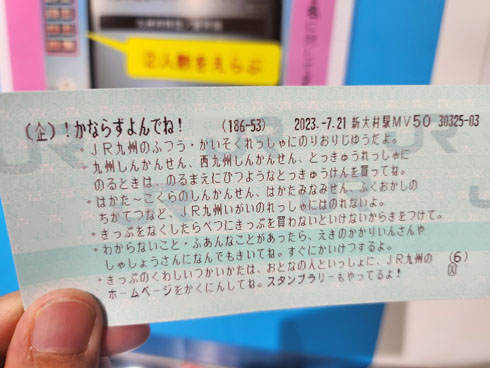 ②人数をえらぶ
(企)!かならずよんでね! (186-53) 2023.-7.21 新大村駅MV50 30325-03
・JR九州のふつう・かいそくれっしゃにのりおりじゆうだよ。
・九州しんかんせん、西九州しんかんせん、とっきゅうれっしゃに
のるときは、のるまえにひつようなとっきゅうけんを買ってね。
・はかた~こくらのしんかんせん、はかたみなみせん、ふくおかしの
ちかてつなど、JR九州いがいのれっしゃにはのれないよ。
・きっぷをなくしたらべつにきっぷを買わないといけないからきをつけて。
・わからないこと・ふあんなことがあったら、えきのかかりいんさんや
しゃしょうさんになんでもきいてね。すぐにかいけつするよ。
・きっぷのくわしいつかいかたは、おとなの人といっしょに、JR九州の (6)
ホームページをかくにんしてね。スタンプラリーもやってるよ!